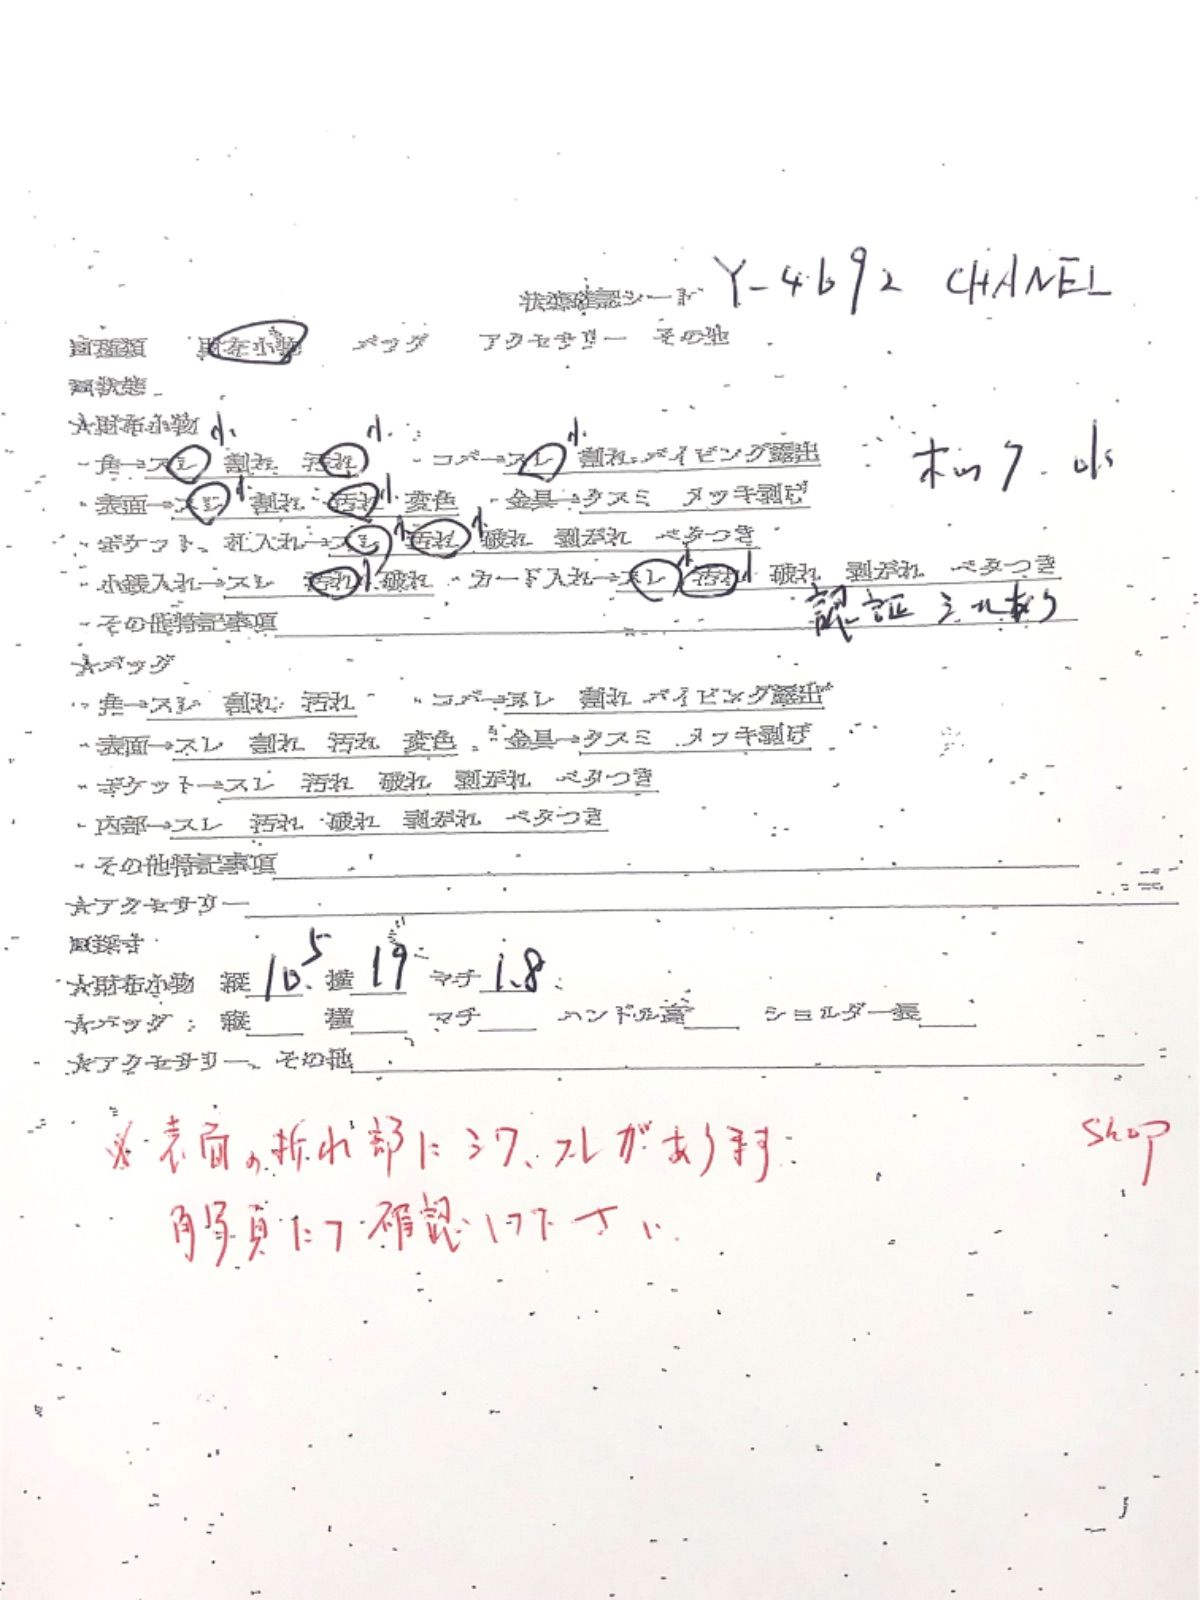 状態確認シート Y-4692 CHANEL
□種類 財布小物 バッグ アクセサリー その他
□状態
★財布小物
・角→スレ小 割れ 汚れ小 ・コバ→スレ小 割れ パイピング露出
ホック ok
・表面→スレ小 割れ 汚れ小 変色 ・金具→クスミ メッキ剥げ
・ポケット、札入れ→スレ小 汚れ小 破れ 剥がれ ベタつき
・小銭入れ→スレ 汚れ小 破れ ・カード入れ→スレ小 汚れ小 破れ 剥がれ ベタつき
・その他特記事項 認証シールあり
★バッグ
・角→スレ 割れ 汚れ ・コバ→スレ 割れ パイピング露出
・表面→スレ 割れ 汚れ 変色 ・金具→クスミ メッキ剥げ
・ポケット→スレ 汚れ 破れ 剥がれ ベタつき
・内部→スレ 汚れ 破れ 剥がれ ベタつき
・その他特記事項
★アクセサリー
□採寸
★財布小物 縦10.5 横19 マチ1.8
★バッグ：縦 横 マチ ハンドル高 ショルダー長
★アクセサリー、その他
※表面の折れ部にシワ、スレがあります shop
写真にて確認して下さい